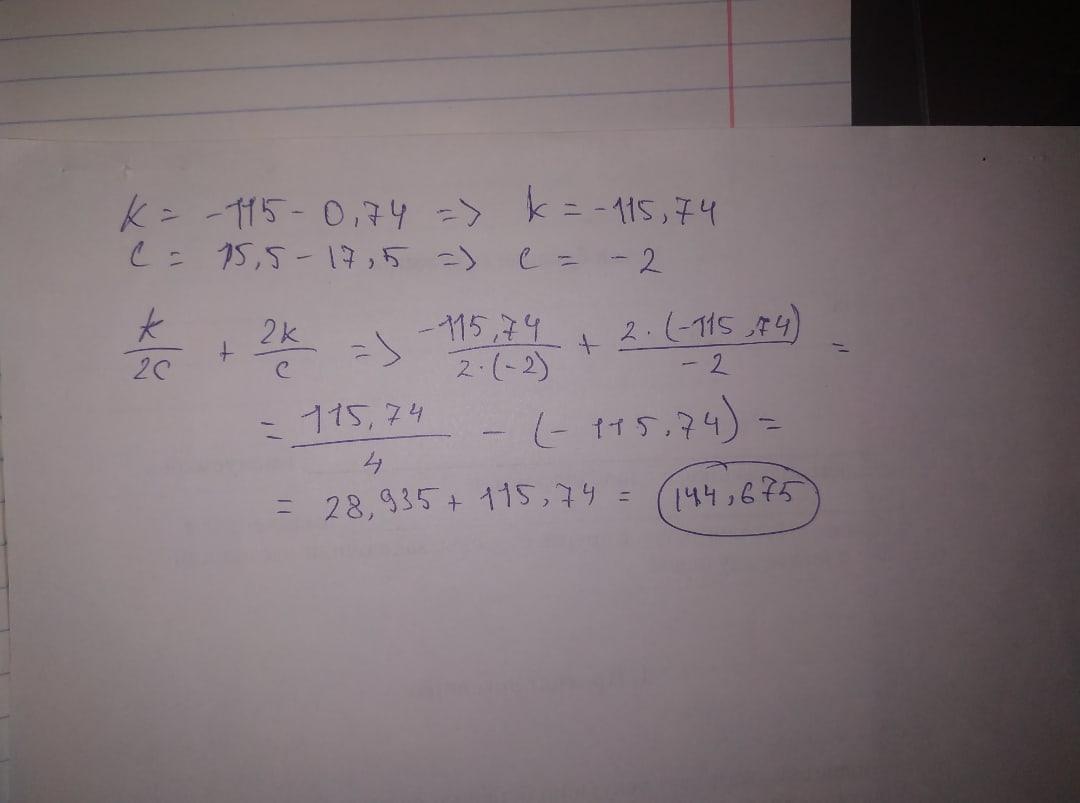 k = -115 - 0,74 => k = -115,74
c = 15,5 - 17,5 => c = -2
k/2c + 2k/c => -115,74/2·(-2) + 2·(-115,74)/-2 =
= 115,74/4 - (-115,74) =
= 28,935 + 115,74 = 144,675